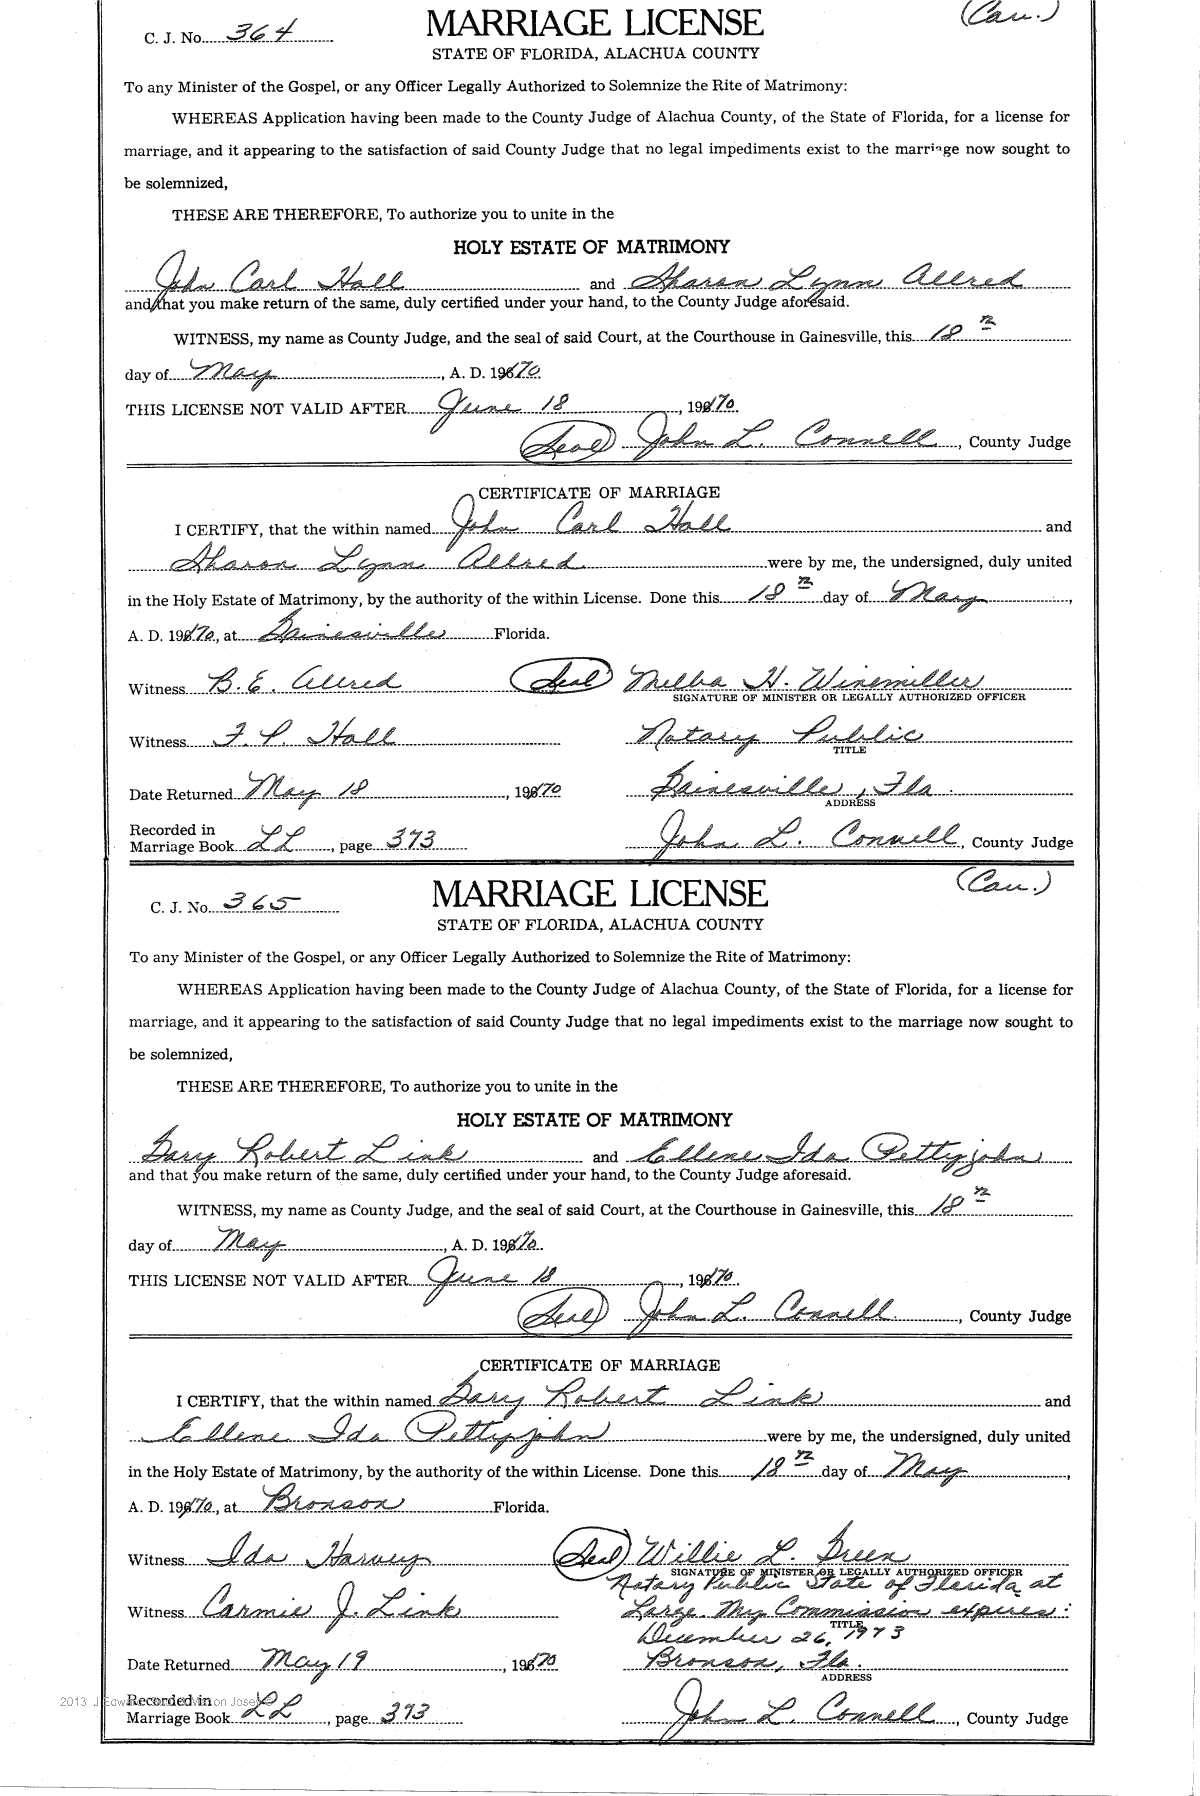 (Cau.)
C. J. No. 364
MARRIAGE LICENSE
STATE OF FLORIDA, ALACHUA COUNTY
To any Minister of the Gospel, or any Officer Legally Authorized to Solemnize the Rite of Matrimony:
WHEREAS Application having been made to the County Judge of Alachua County, of the State of Florida, for a license for
marriage, and it appearing to the satisfaction of said County Judge that no legal impediments exist to the marriage now sought to
be solemnized,
THESE ARE THEREFORE, To authorize you to unite in the
HOLY ESTATE OF MATRIMONY
John Carl Hall and Sharon Lynn Allred
and that you make return of the same, duly certified under your hand, to the County Judge aforesaid.
WITNESS, my name as County Judge, and the seal of said Court, at the Courthouse in Gainesville, this 18th
day of May, A. D. 1970.
THIS LICENSE NOT VALID AFTER June 18, 1970.
(Seal) John L. Connell, County Judge
CERTIFICATE OF MARRIAGE
I CERTIFY, that the within named John Carl Hall and
Sharon Lynn Allred were by me, the undersigned, duly united
in the Holy Estate of Matrimony, by the authority of the within License. Done this 18th day of May,
A. D. 1970, at Gainesville Florida.
Witness B. E. Allred (Seal) Melba H. Winemiller
SIGNATURE OF MINISTER OR LEGALLY AUTHORIZED OFFICER
Witness F. P. Hall Notary Public
TITLE
Date Returned May 18, 1970 Gainesville, Fla.
ADDRESS
Recorded in
Marriage Book LL, page 373 John L. Connell, County Judge
(Cau.)
C. J. No. 365
MARRIAGE LICENSE
STATE OF FLORIDA, ALACHUA COUNTY
To any Minister of the Gospel, or any Officer Legally Authorized to Solemnize the Rite of Matrimony:
WHEREAS Application having been made to the County Judge of Alachua County, of the State of Florida, for a license for
marriage, and it appearing to the satisfaction of said County Judge that no legal impediments exist to the marriage now sought to
be solemnized,
THESE ARE THEREFORE, To authorize you to unite in the
HOLY ESTATE OF MATRIMONY
Gary Robert Link and Ellene Ida Pettyjohn
and that you make return of the same, duly certified under your hand, to the County Judge aforesaid.
WITNESS, my name as County Judge, and the seal of said Court, at the Courthouse in Gainesville, this 18th
day of May, A. D. 1970.
THIS LICENSE NOT VALID AFTER June 18, 1970.
(Seal) John L. Connell, County Judge
CERTIFICATE OF MARRIAGE
I CERTIFY, that the within named Gary Robert Link and
Ellene Ida Pettyjohn were by me, the undersigned, duly united
in the Holy Estate of Matrimony, by the authority of the within License. Done this 18th day of May,
A. D. 1970, at Bronson Florida.
Witness Ida Harvey (Seal) Willie L. Green
SIGNATURE OF MINISTER OR LEGALLY AUTHORIZED OFFICER
Notary Public State of Florida at
Witness Carmie J. Link Large. My Commission expires:
TITLE
December 26, 1973
Date Returned May 19, 1970 Bronson, Fla.
ADDRESS
2013
Recorded in
Marriage Book LL, page 373 John L. Connell, County Judge